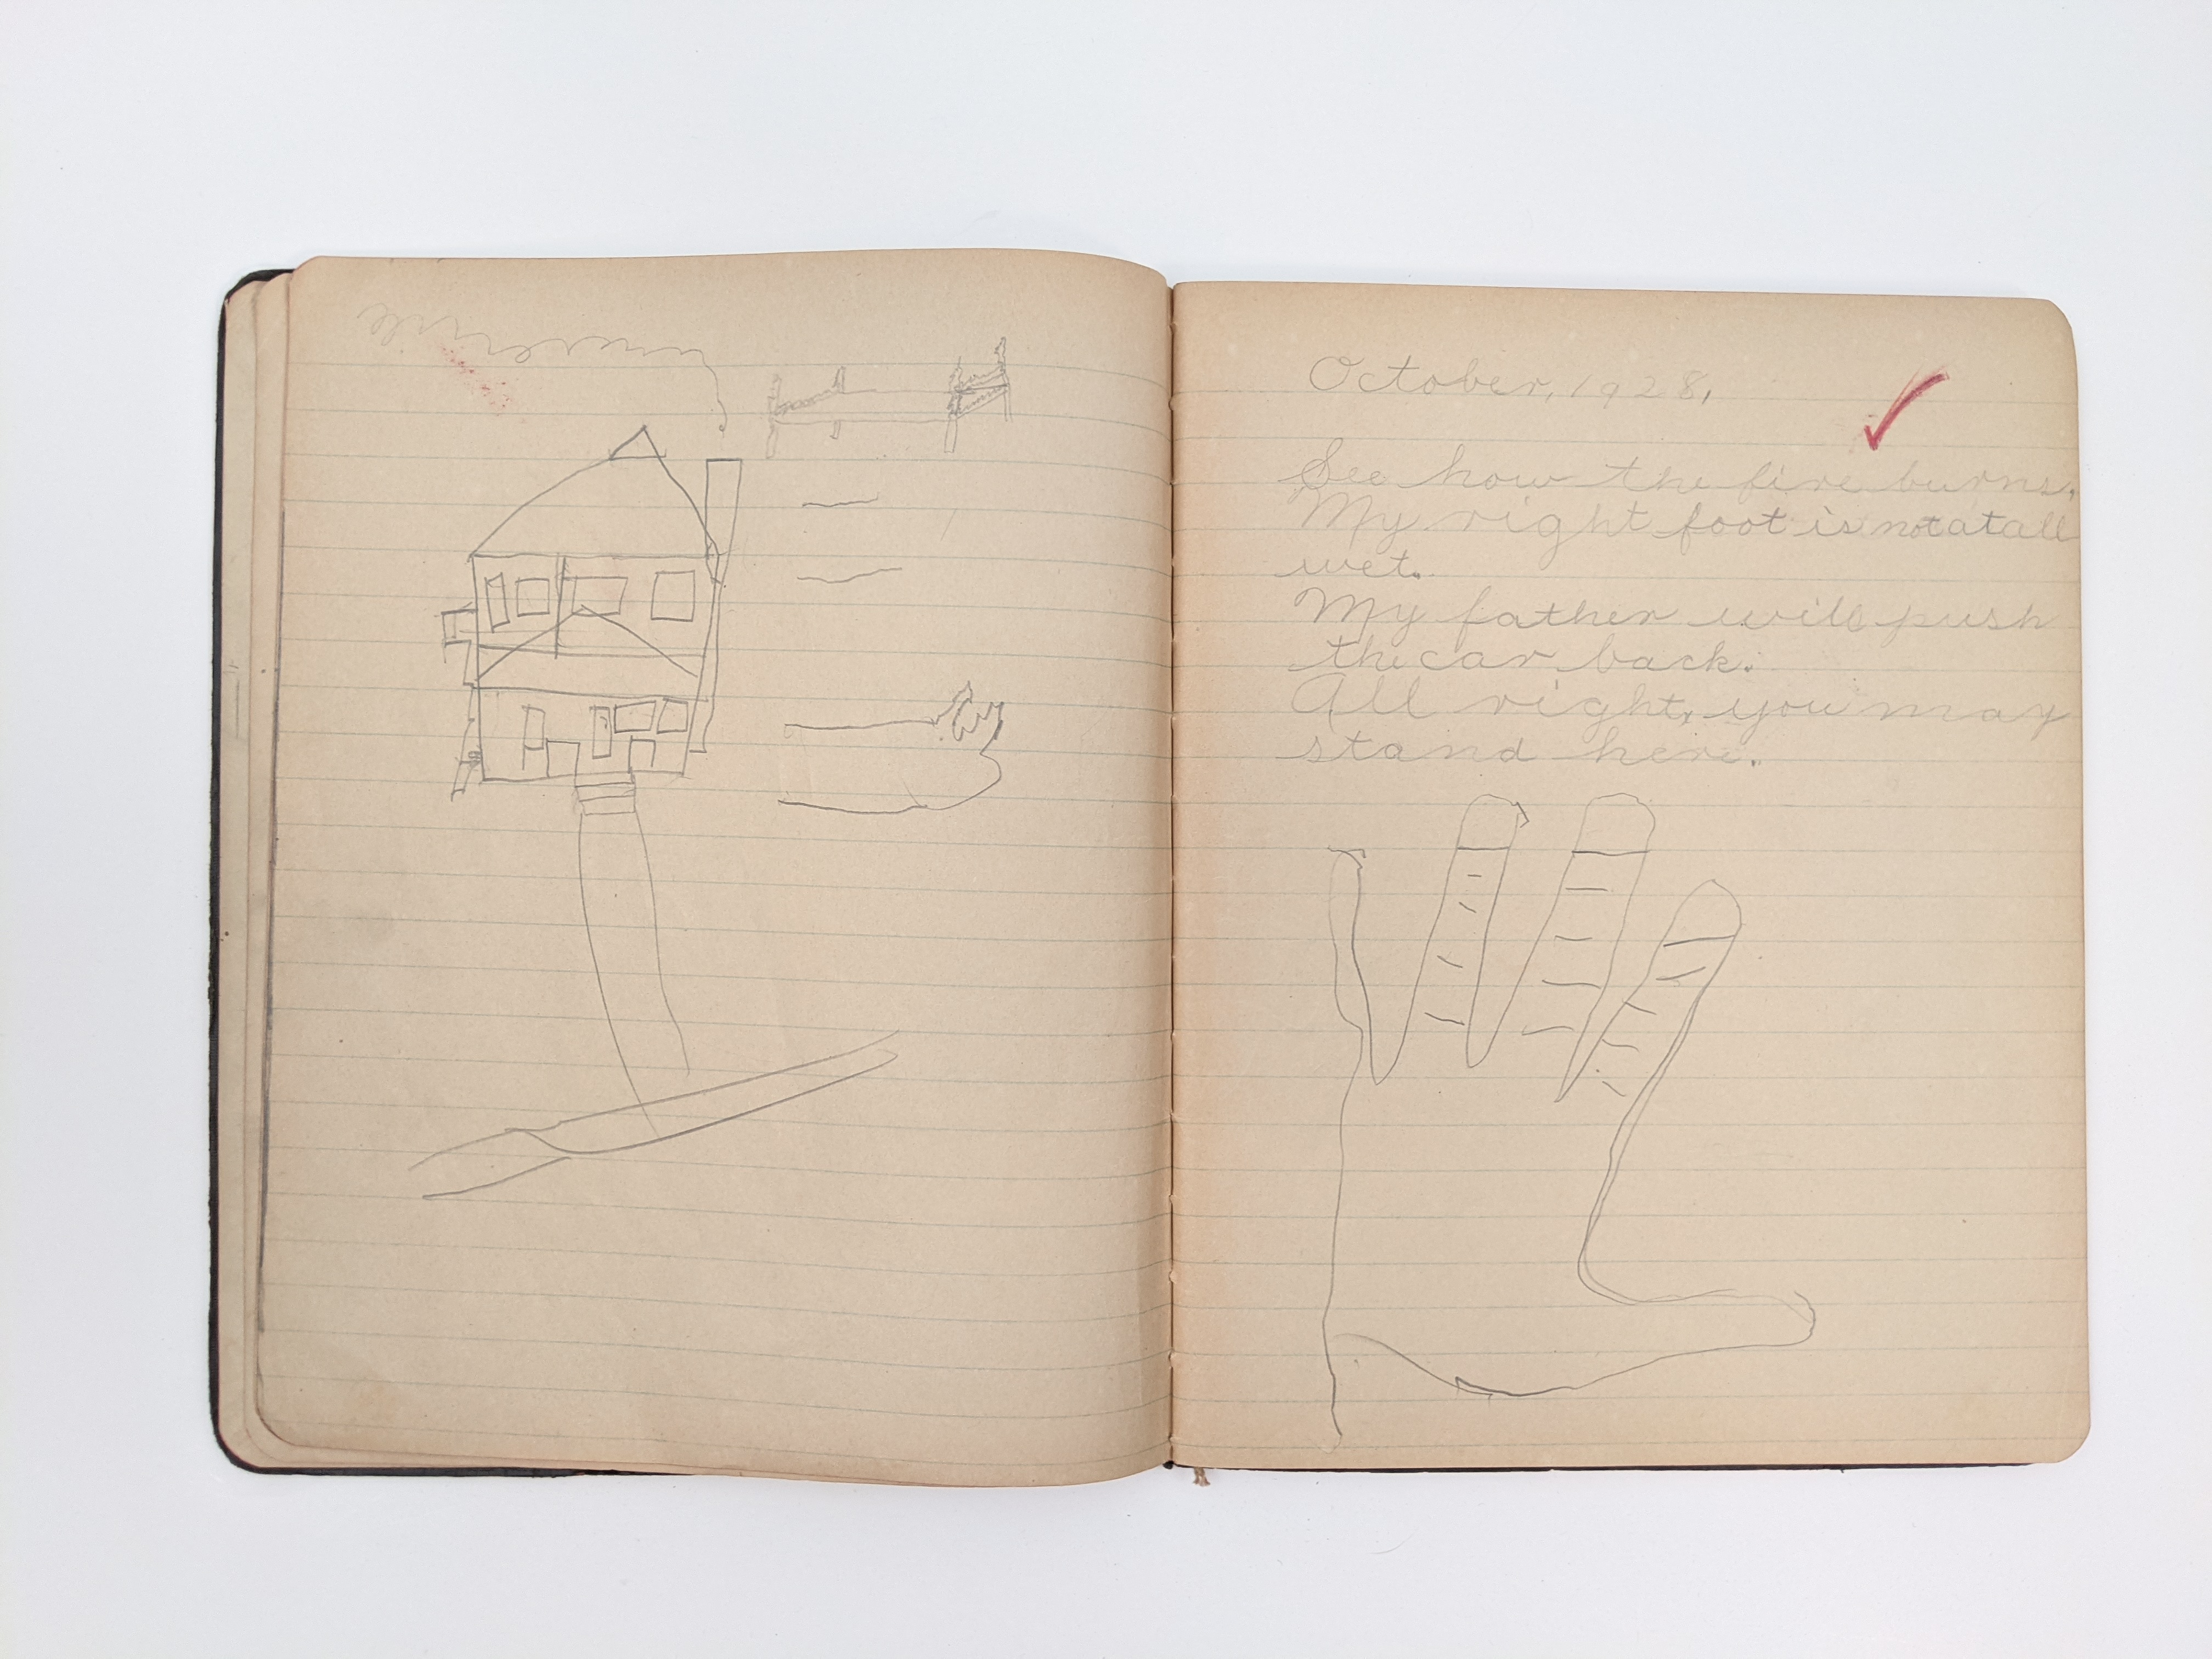 October, 1928,
See how the fire burns.
My right foot is not at all
wet.
My father will push
the car back.
All right, you may
stand here.